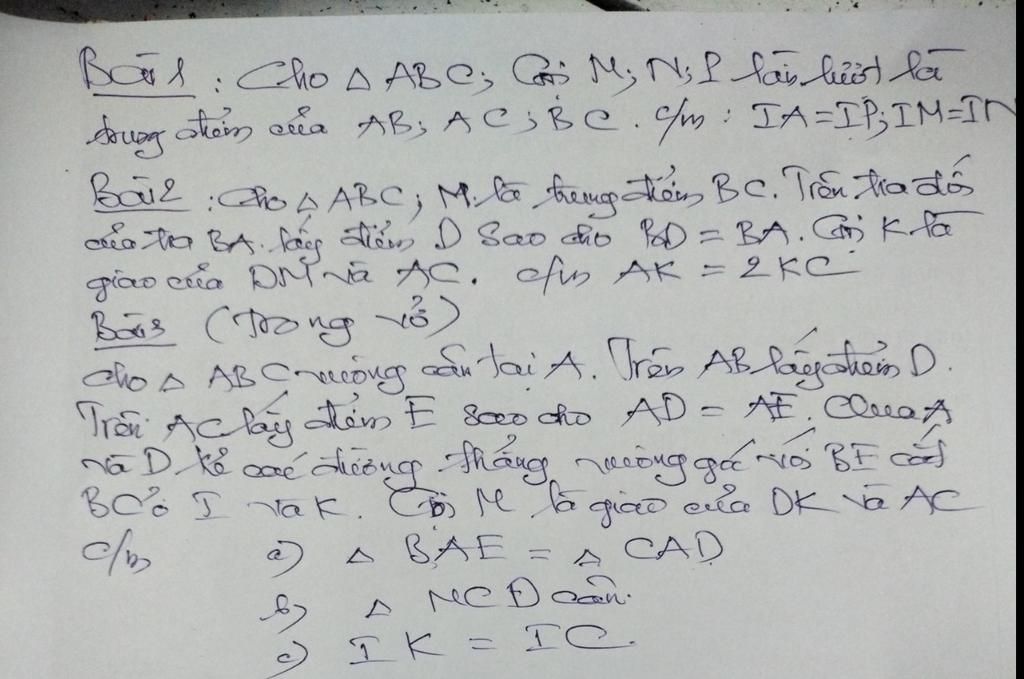 Bài 1 : Cho △ ABC; Gọi M; N; P lần lượt là
trung điểm của AB; AC; BC. c/m : IA=IP; IM=IN
Bài 2 : Cho △ ABC; M là trung điểm BC. Trên tia đối
của tia BA. lấy điểm D sao cho BD = BA. Gọi K là
giao của DM và AC. c/m AK = 2KC
Bài 3 (Trong vở)
Cho △ ABC vuông cân tại A. Trên AB lấy điểm D.
Trên AC lấy điểm E sao cho AD = AE. Qua A
và D kẻ các đường thẳng vuông góc với BE cắt
BC ở I và K. Gọi M là giao của DK và AC
c/m a) △ BAE = △ CAD
b) △ MCD cân.
c) IK = IC.